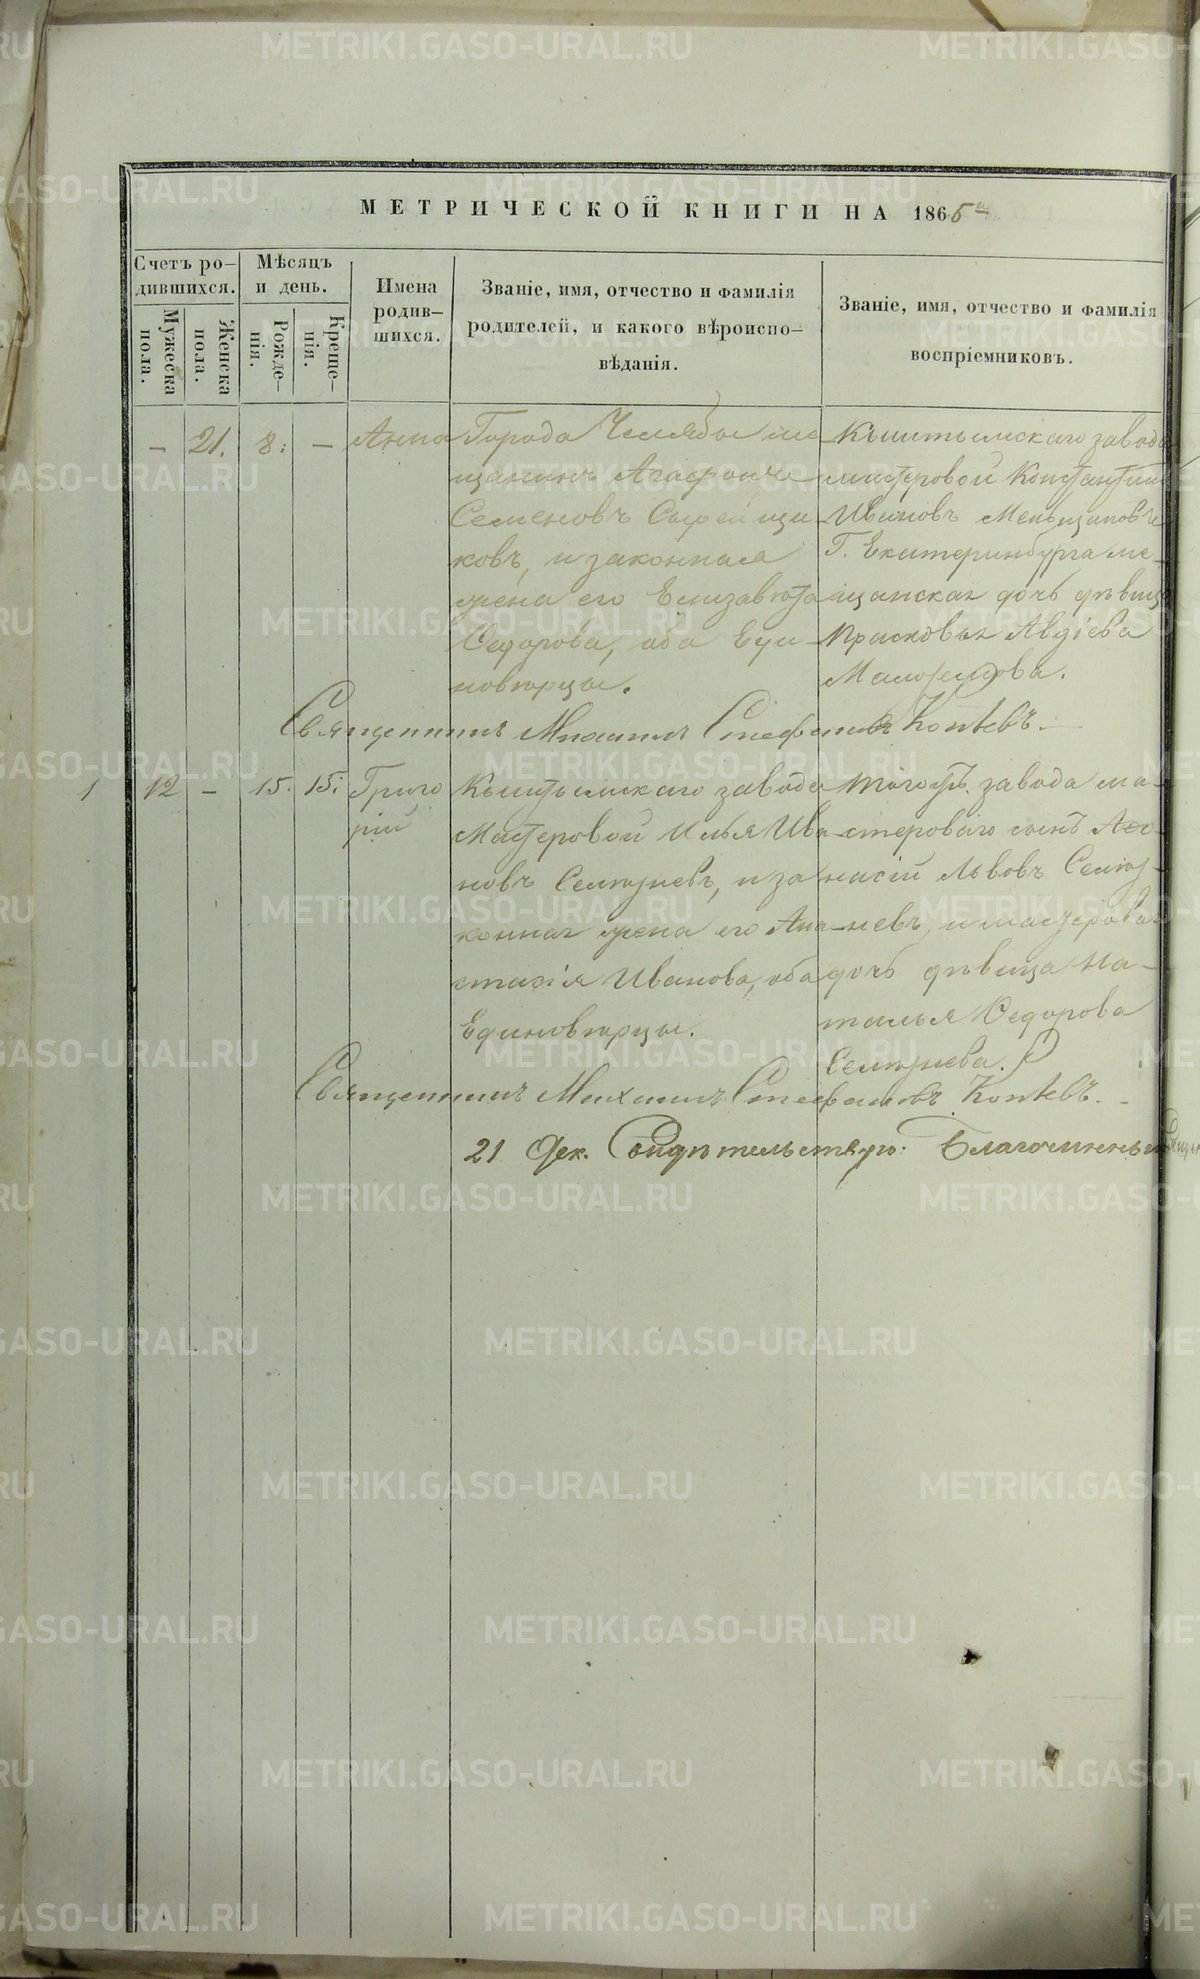 МЕТРИЧЕСКОЙ КНИГИ НА 1865 й
Счетъ ро-
дившихся.
Мужеска
пола.
Женска
пола.
Мѣсяцъ
и день.
Рожде-
нія.
Креще-
нія.
Имена
родив-
шихся.
Званіе, имя, отчество и фамилія
родителей, и какого вѣроиспо-
вѣданія.
Званіе, имя, отчество и фамилія
воспріемниковъ.
- 21. 8. - Анна
Города Челябы ме
щанинъ Агафонъ
Семеновъ
ковъ, и законная
жена его Елизавета
Ѳедорова, оба Еди
новѣрцы.
Кыштымскаго завода
мастеровой Константинъ
Ивановъ Меньщиковъ
Г. Екатеринбурга ме-
щанская дочь дѣвица
Прасковья Авдіева
Священникъ Михаилъ Стефановъ Коптевъ.
1 12 - 15. 15. Григо
рій
Кыштымскаго завода
Мастеровой Илья Ива
новъ Селezневъ, и за
конная жена его Ана
стасія Иванова, оба
Единовѣрцы.
Тогожъ завода ма-
стероваго сынъ Аѳо-
насій Львовъ Селез-
невъ, и мастероваго
дочь дѣвица На-
талья Ѳедорова
Селезнева.
Священникъ Михаилъ Стефановъ Коптевъ.
21 Дек. Свидѣтельствую: Благочинный
METRIKI.GASO-URAL.RU